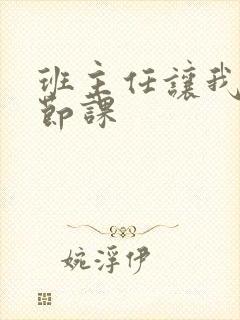 班主任讓我
節課
婉浮伊